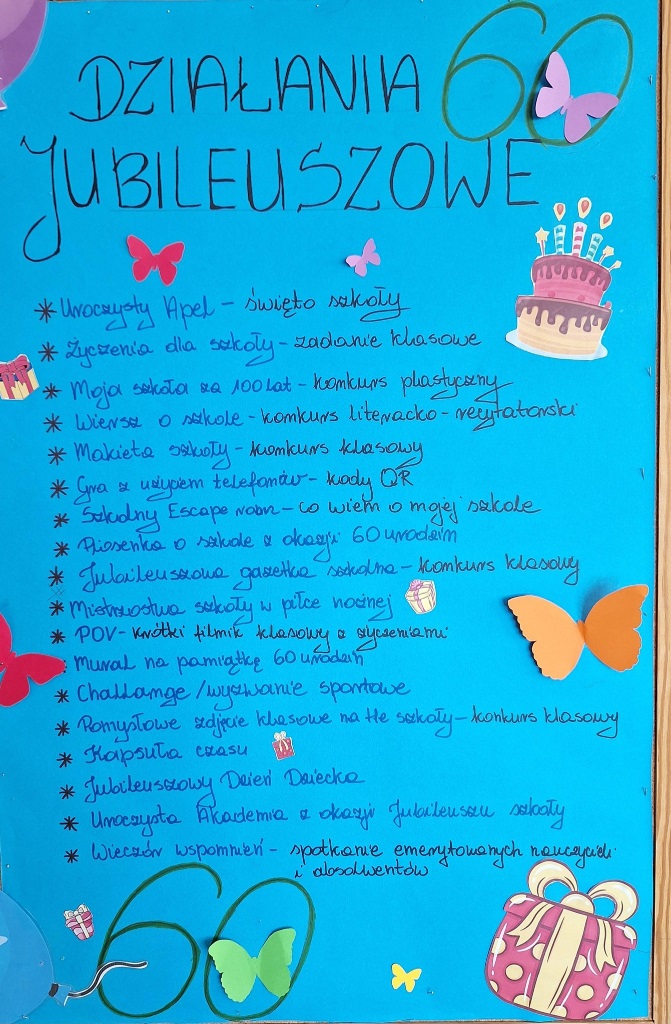 DZIAŁANIA 60
JUBILEUSZOWE
* Uroczysty Apel - święto szkoły
* Życzenia dla szkoły - zadanie klasowe
* Moja szkoła za 100 lat - konkurs plastyczny
* Wiersz o szkole - konkurs literacko - recytatorski
* Makieta szkoły - konkurs klasowy
* Gra z użyciem telefonów - kody QR
* Szkolny Escape room - co wiem o mojej szkole
* Piosenka o szkole z okazji 60 urodzin
* Jubileuszowa gazetka szkolna - konkurs klasowy
* Mistrzostwa szkoły w piłce nożnej
* POV - krótki filmik klasowy z życzeniami
Mural na pamiątkę 60 urodzin
* Challange / wyzwanie sportowe
* Pomysłowe zdjęcie klasowe na tle szkoły - konkurs klasowy
* Kapsuła czasu
* Jubileuszowy Dzień Dziecka
* Uroczysta Akademia z okazji Jubileuszu szkoły
* Wieczór wspomnień - spotkanie emerytowanych nauczycieli
i absolwentów
60